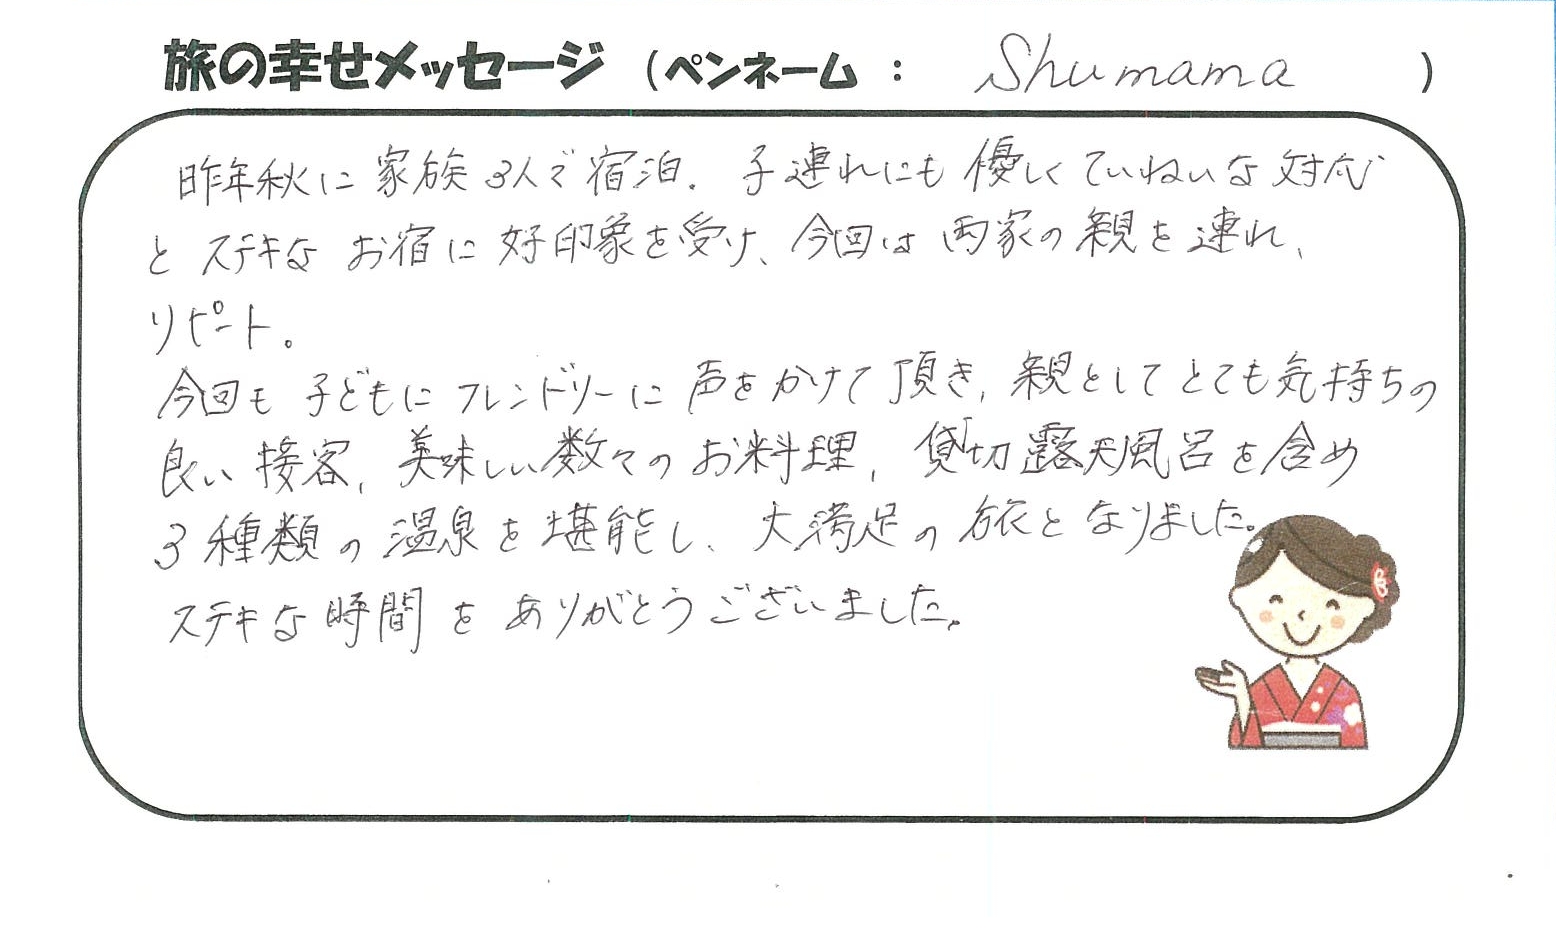 旅の幸せメッセージ (ペンネーム : Shumama )
昨年秋に家族3人で宿泊。子連れにも優しくていねいな対応
とステキなお宿に好印象を受け、今回は両家の親を連れ、
リピート。
今回も子どもにフレンドリーに声をかけて頂き、親としてとても気持ちの
良い接客、美味しい数々のお料理、貸切露天風呂を含め
3種類の温泉を堪能し、大満足の旅となりました。
ステキな時間をありがとうございました。